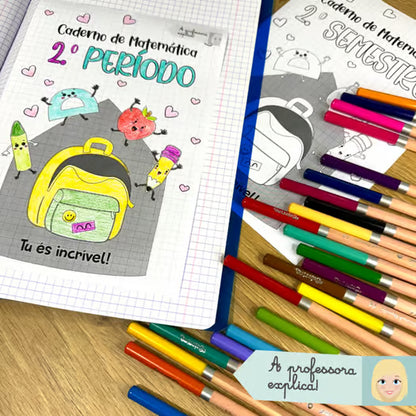 Caderno de Matemática
2.º PERÍODO
Tu és incrível!
Caderno de Matem
2.º SEMESTRE
A professora
explica!